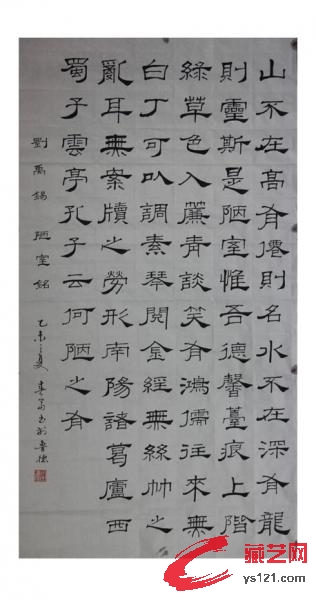 山不在高有僊則名水不在深有龍
則靈斯是陋室惟吾德馨薹痕上階
綠草色入簾青談笑有鴻儒往來無
白丁可以調素琴閱金經無絲竹之
亂耳無案牘之勞形南陽諸葛廬西
蜀子雲亭孔子云何陋之有
劉禹錫 陋室銘
乙未之夏
藏艺网
ys121.com